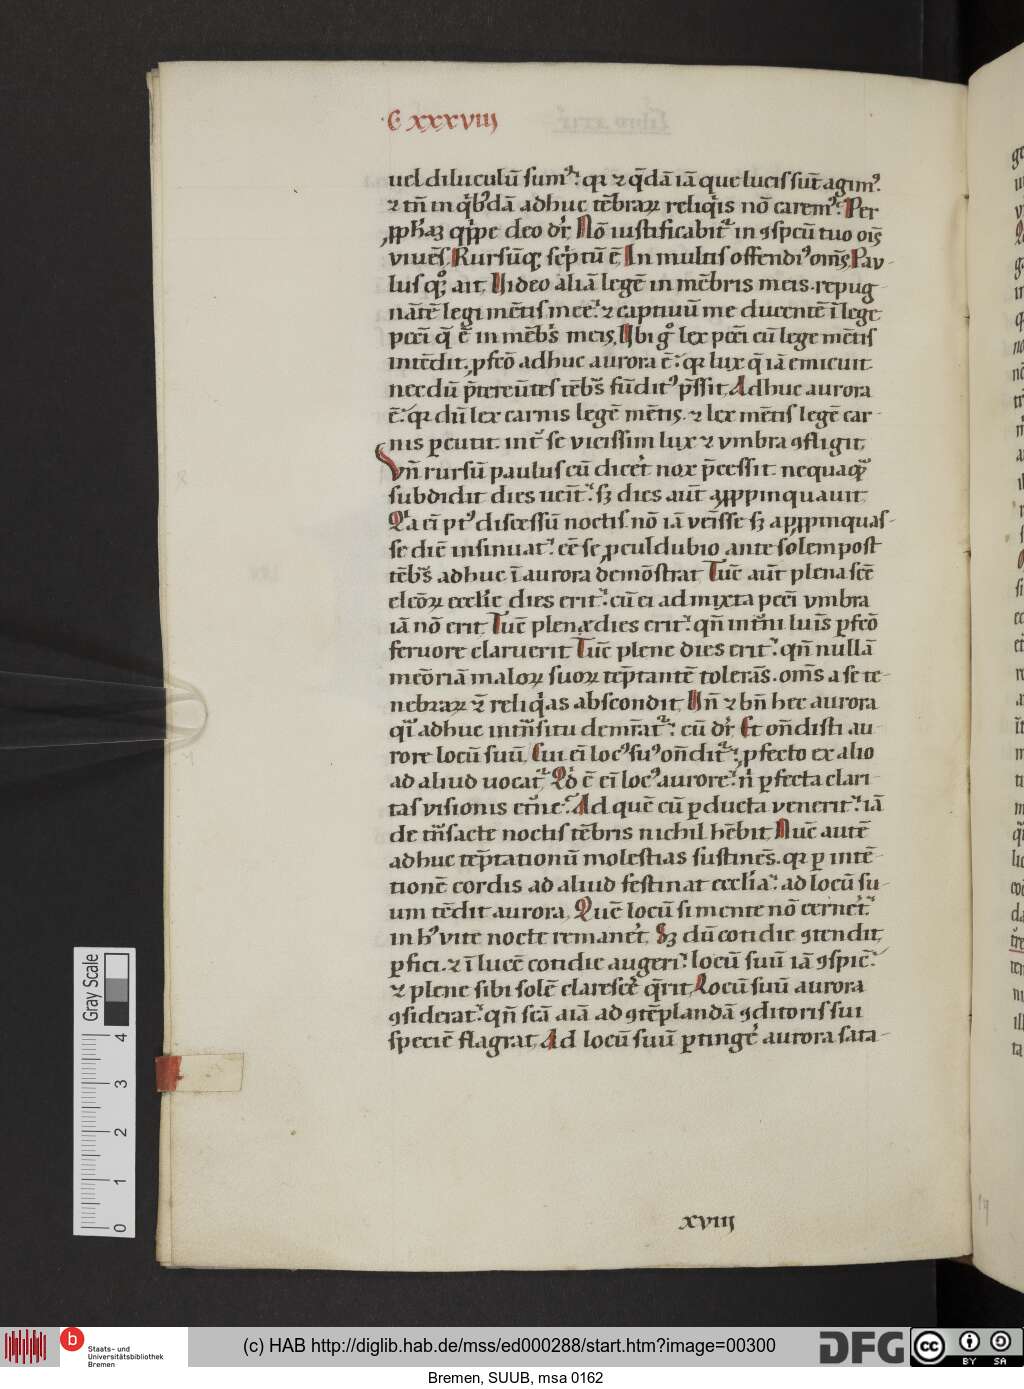 C xxxviii
uel diluculū sumꝰ. qꝛ ⁊ q̄dā iā que lucis sūt agimꝰ.
⁊ tn̄ in qͥbꝰdā adhuc tēbraꝝ reliqͥs nō caremꝰ. Per
ꝓph̓aꝫ qͥppe deo dr̓. Nō iustificabit᷑ in ꝯspcū tuo oīs
viuēs. Rursūqꝫ sc̓ptū ē. In multis offendiꝰ om̄s. Pau-
lus qꝫ ait. Uideo aliā legē in mēbris meis. repug
nātē legi mētis mee. ⁊ captiuū me ducentē ī lege
pcc̄i q̄ ē in mēbs̓ meis. Ubi gͦ lex pcc̄i cū lege mētis
intēdit. ꝓfcō adhuc aurora ē. qꝛ lux q̄ iā emicuit
nec dū p̄tereūtes tēbs̓ fūditꝰ p̄ssit. Adhuc aurora
ē. qꝛ dū lex carnis legē mētis. ⁊ lex mētis legē car-
nis ꝑcutit. int̓ se vicissim lux ⁊ vmbra ꝯfligit.
Vn̄ rursū paulus cū dicet̓ nox p̄cessit. nequaqͣꝫ
subdidit dies uenit. sꝫ dies aūt appꝓpinquauit.
Qͥa ei ptꝰ discessū noctis. nō iā venisse sꝫ appꝓpinquas-
se diē insinuat. eē se ꝓculdubio ante solem post
tēbs̓ adhuc ī aurora demōstrat. Tūc aūt plena scē
elcōꝝ ecclie dies erit. cū ei admixta pcc̄i vmbra
iā nō erit. Tūc plena dies erit. qn̄ int̓ni luīs ꝑfcō
feruore claruerit. Tūc plene dies erit. qn̄ nullā
meōriā maloꝝ suoꝝ tēptantē tolerās. om̄s a se te-
nebraꝝ ⁊ reliqͥas abscondit. Un̄ ⁊ bn̄ hec aurora
qͣi adhuc int̓nsitu demr̄at᷑. cū dr̓. Et on̄disti au-
rore locū suū. Cui ei locꝰ suꝰ on̄dit᷑. ꝓfecto ex alio
ad aliud uocat᷑. Qd̓ ē ei locꝰ aurore. n̓ ꝑfecta clari-
tas visionis et̓ne. Ad quē cū ꝑducta venerit. iā
de tn̓sacte noctis tēbris nichil hēbit. Nūc autē
adhuc tēptationū molestias sustinēs. qꝛ ꝑ intē-
tionē cordis ad aliud festinat ecclīa. ad locū su-
um tēdit aurora. Quē locū si mente nō cernet᷑.
in hꝰ vite nocte remanet̓. Sꝫ dū cotidie ꝯtendit
ꝑfici. ⁊ ī lucē cotidie augeri. locū suū iā ꝯspic̄.
⁊ plene sibi solē clarescē q̄rit. Locū suū aurora
ꝯsiderat. qn̄ scā aiā ad ꝯtēplandā ꝯditoris sui
speciē flagrat. Ad locū suū ꝑtingē aurora sata-
xviij
Gray Scale
4
3
2
1
0
b
Staats- und
Universitätsbibliothek
Bremen
(c) HAB http://diglib.hab.de/mss/ed000288/start.htm?image=00300
DFG
cc
BY SA
Bremen, SUUB, msa 0162